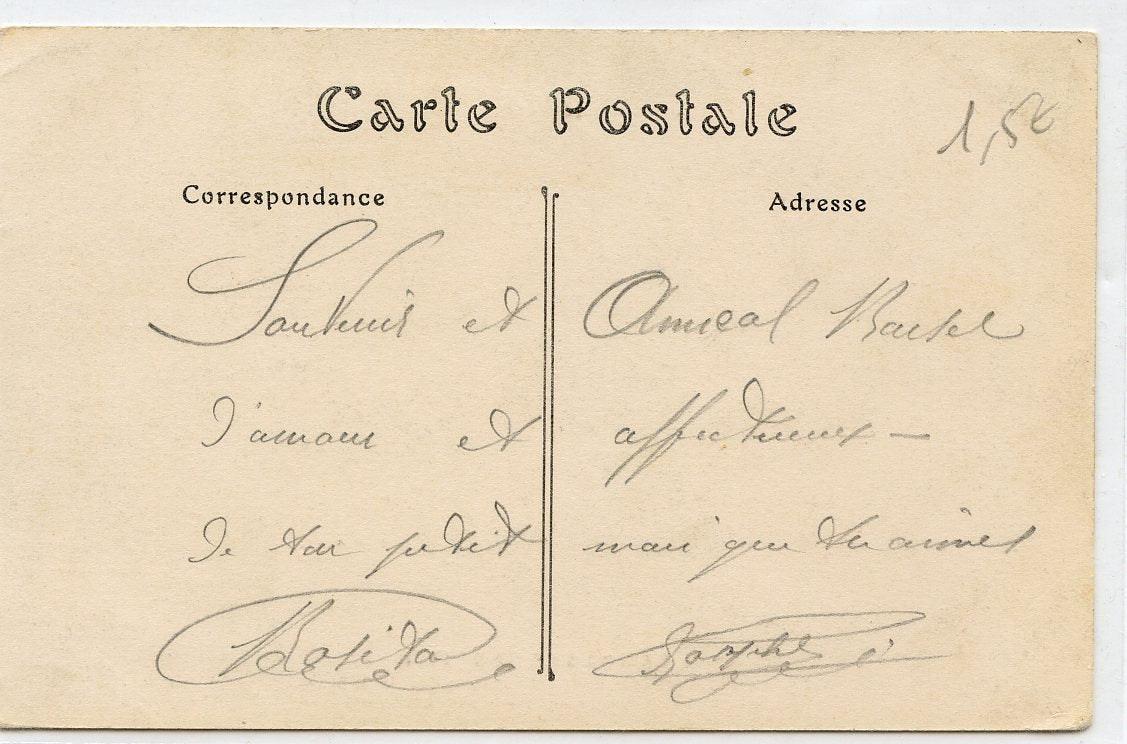 Carte Postale
1,5€
Correspondance
Adresse
Souvenir et Amical Baiser
d'amour et affectueux —
de ton petit mari que tu aimes
Rosita Joseph